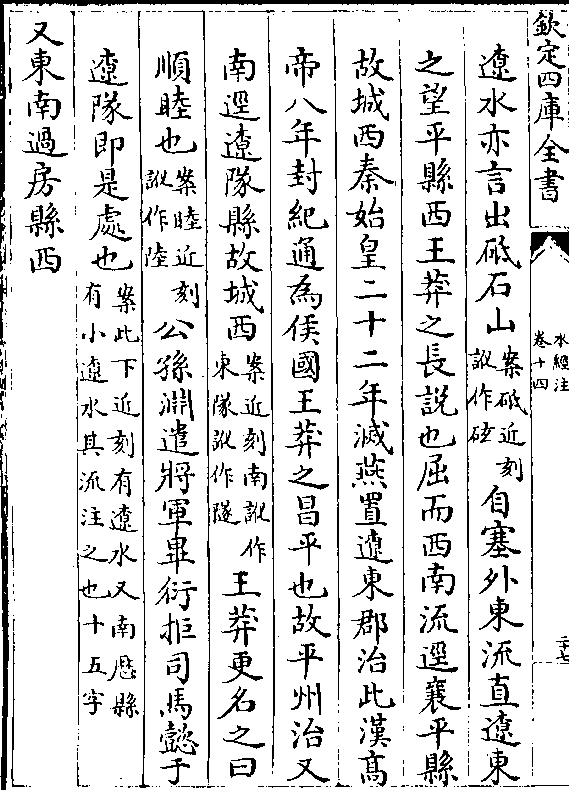 欽定四庫全書
水經注
卷十四
二十七
遼水亦言出砥石山案砥近刻訛作砫自塞外東流直遼東
之望平縣西王莽之長說也屈而西南流逕襄平縣
故城西秦始皇二十二年滅燕置遼東郡治此漢高
帝八年封紀通為侯國王莽之昌平也故平州治又
南逕遼隊縣故城西案近刻南訛作東隊訛作隧王莽更名之曰
順睦也案睦近刻訛作陸公孫淵遣將軍畢衍拒司馬懿于
遼隊即是處也案此下近刻有遼水又南歴縣有小遼水其流注之也十五字
又東南過房縣西